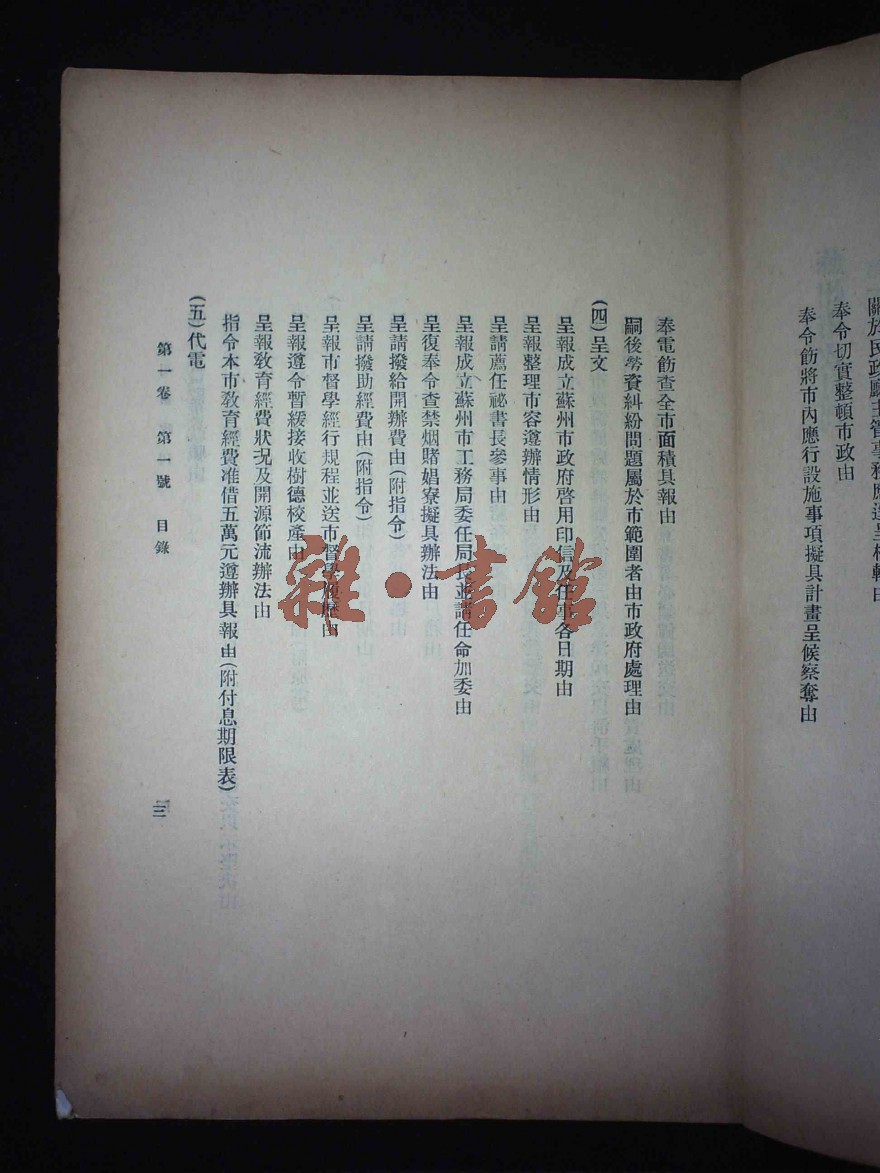 奉令切實整頓市政由
奉令飭將市內應行設施事項擬具計畫呈候察奪由
奉電飭查全市面積具報由
嗣後勞資糾紛問題屬於市範圍者由市政府處理由
(四)呈文
呈報成立蘇州市政府啓用印信及任事各日期由
呈報整理市容遵辦情形由
呈請薦任祕書長參事由
呈報成立蘇州市工務局委任局長並請任命加委由
呈復奉令查禁烟賭娼寮擬具辦法由
呈請撥給開辦費由(附指令)
呈請撥助經費由(附指令)
呈報市督學經行規程並送市督學履歷由
呈報遵令暫緩接收樹德校產由
呈報教育經費狀況及開源節流辦法由
指令本市教育經費准借五萬元遵辦具報由(附付息期限表)
(五)代電
第一卷 第一號 目錄
三
雜·書館